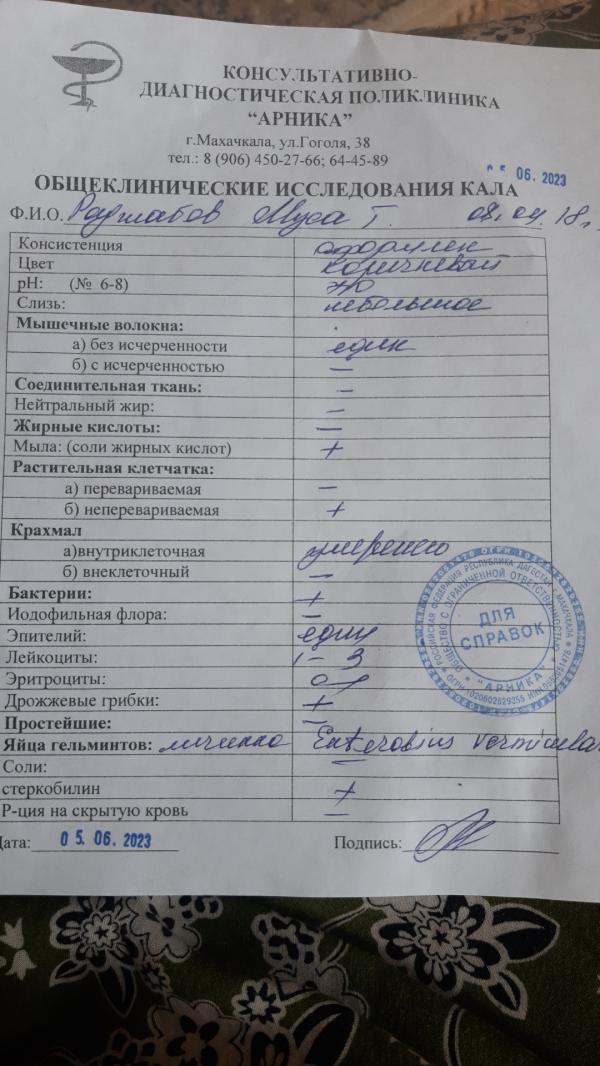 КОНСУЛЬТАТИВНО-
ДИАГНОСТИЧЕСКАЯ ПОЛИКЛИНИКА
“АРНИКА”
г.Махачкала, ул.Гоголя, 38
тел.: 8 (906) 450-27-66; 64-45-89
05 06. 2023
ОБЩЕКЛИНИЧЕСКИЕ ИССЛЕДОВАНИЯ КАЛА
Ф.И.О. Раджабов Муса Г.
Консистенция оформлен
Цвет коричневый
pH: (№ 6-8)
Слизь: небольшое
Мышечные волокна:
а) без исчерченности един
б) с исчерченностью –
Соединительная ткань: –
Нейтральный жир: –
Жирные кислоты: –
Мыла: (соли жирных кислот) +
Растительная клетчатка:
а) перевариваемая –
б) неперевариваемая +
Крахмал
а)внутриклеточная умеренно
б) внеклеточный –
Бактерии: +
Иодофильная флора: –
Эпителий: един
Лейкоциты: 1–3
Эритроциты:
Дрожжевые грибки: +
Простейшие: –
Яйца гельминтов: личинка Enterobius vermicular
Соли: –
стеркобилин +
Р-ция на скрытую кровь –
Дата: 05. 06. 2023 Подпись:
РОССИЙСКАЯ ФЕДЕРАЦИЯ РЕСПУБЛИКА ДАГЕСТАН Г. МАХАЧКАЛА
ОБЩЕСТВО С ОГРАНИЧЕННОЙ ОТВЕТСТВЕННОСТЬЮ
"АРНИКА"
ДЛЯ
СПРАВОК